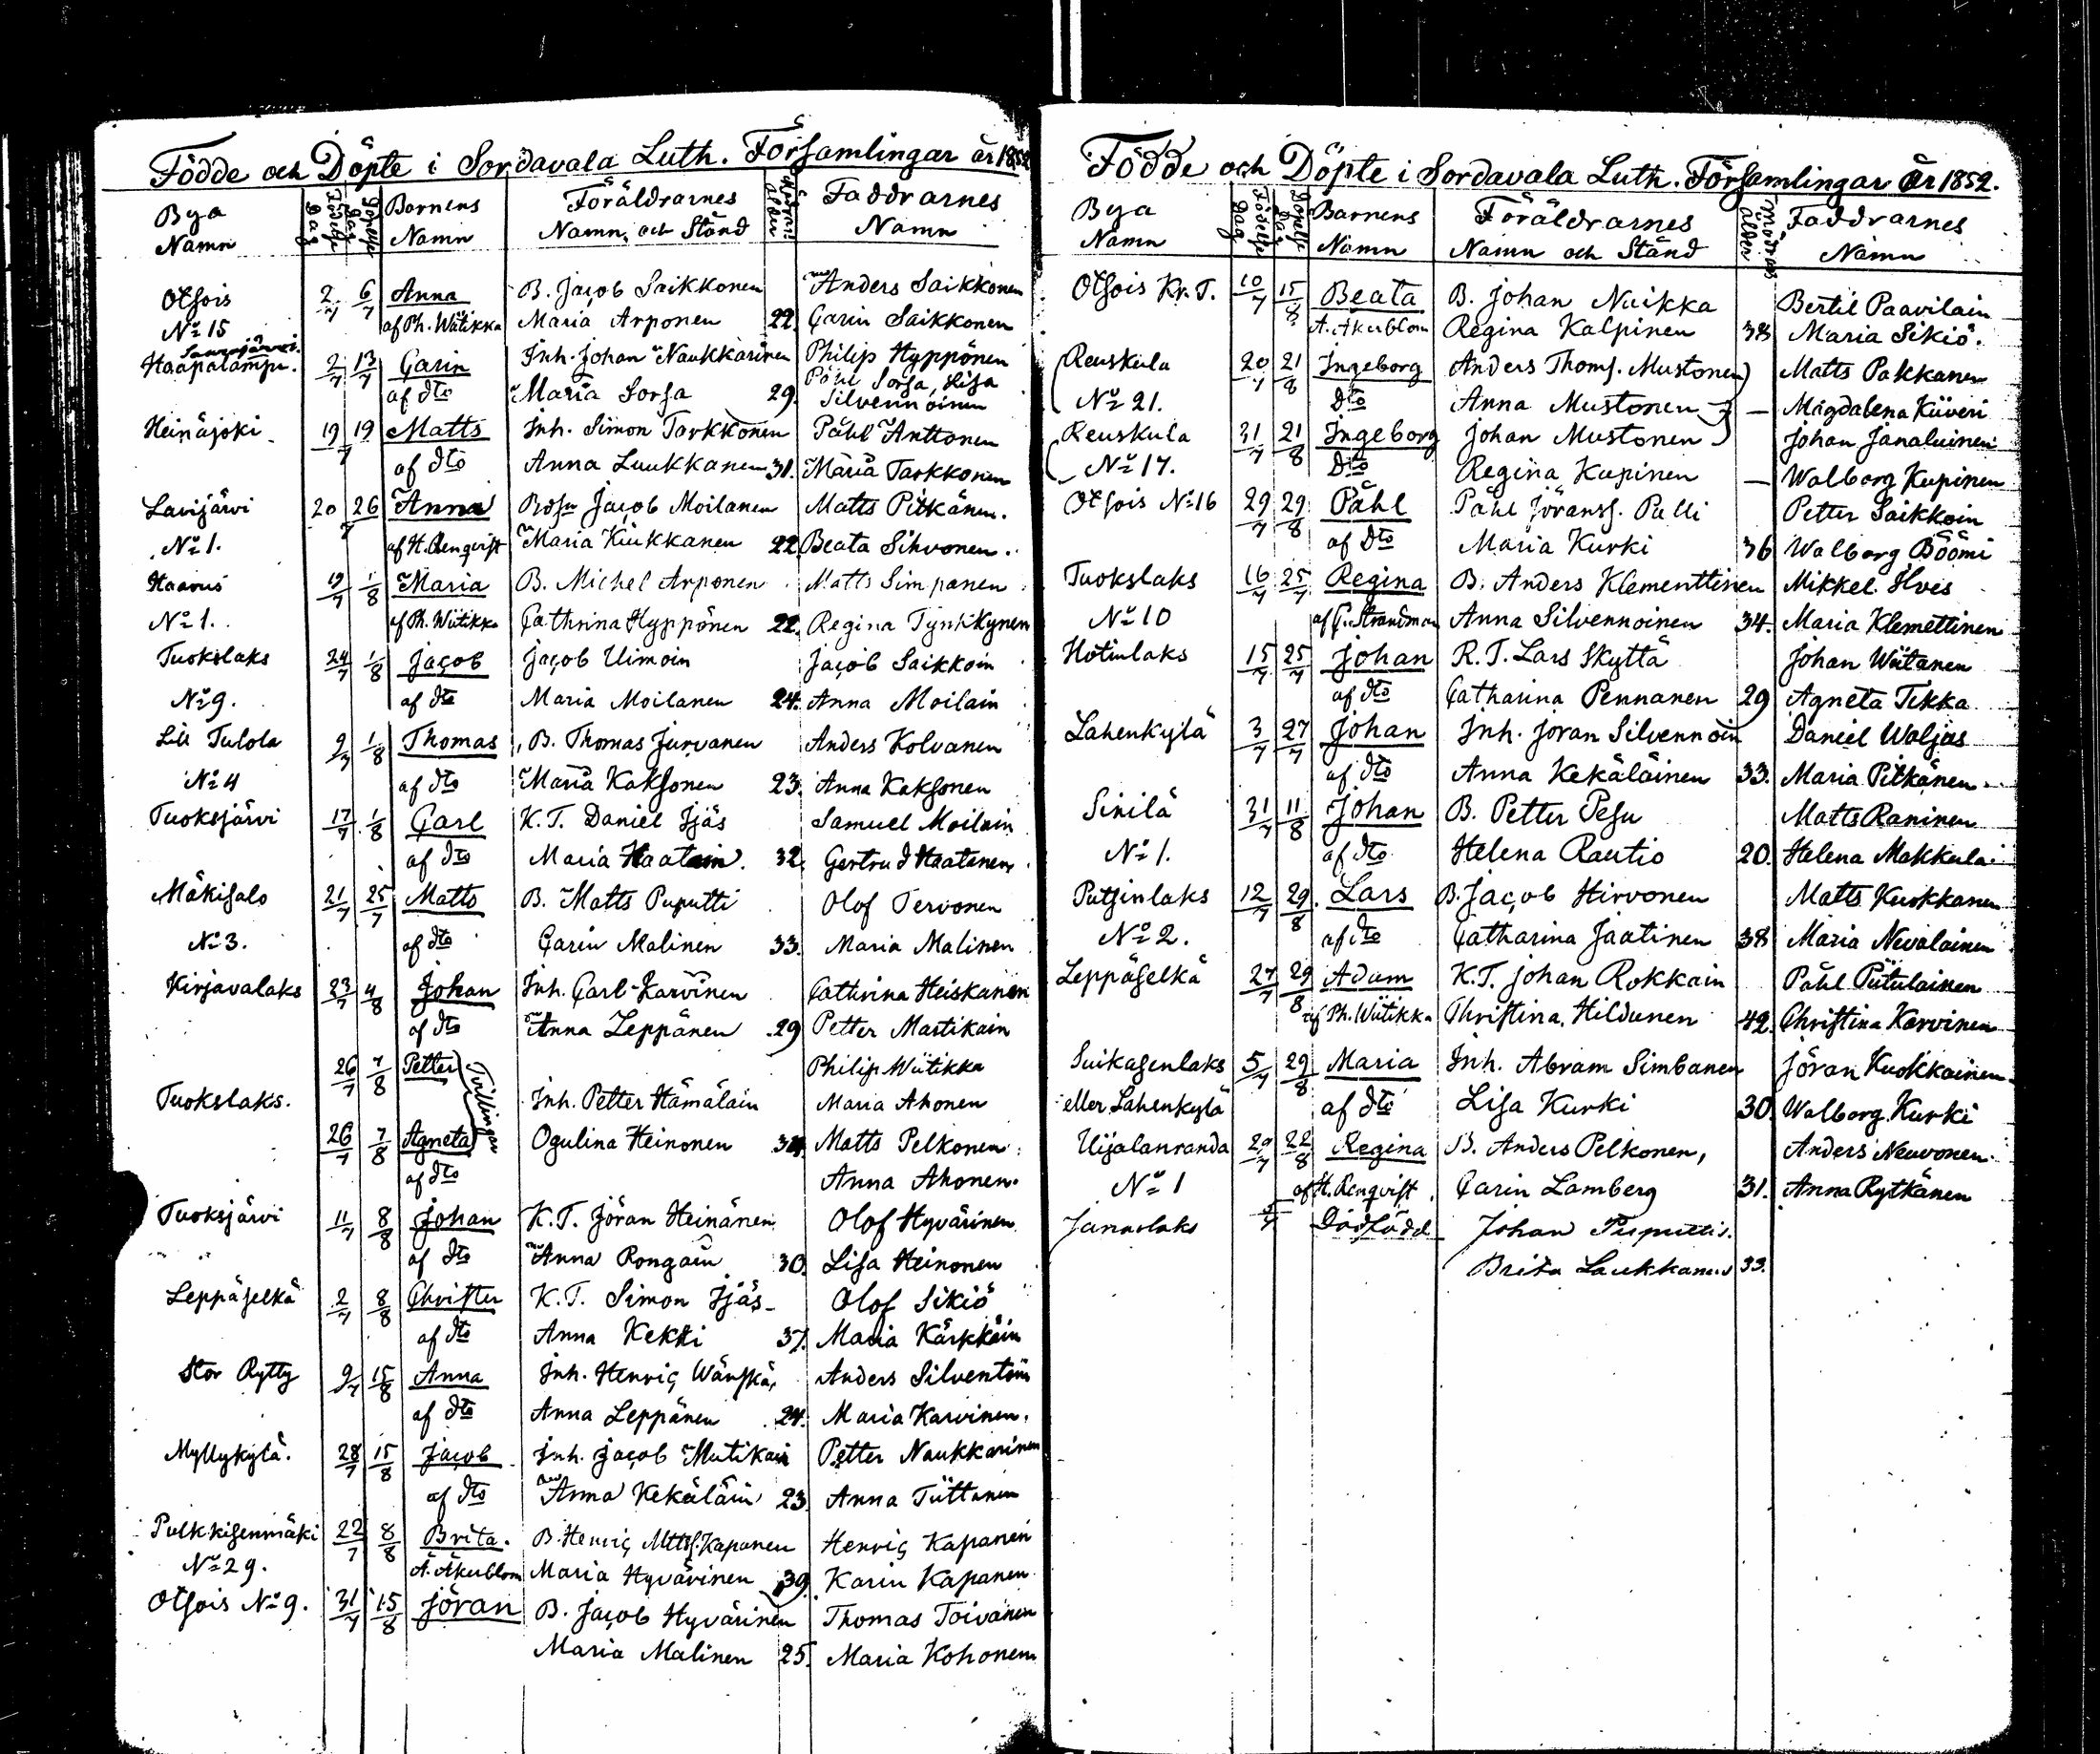 Födde och Döpte i Sordavala Luth. Församlingar år 1852
Bya Namn Födelse Dag Döpelse Dag Barnens Namn Föräldrarnes Namn och Stånd Modrens Ålder Faddrarnes Namn
Otsois 2/7 6/7 Anna B. Jacob Saikkonen Anders Saikkonen
No 15 af Ph. Wiitikka Maria Arponen 22. Carin Saikkonen
Saurojärvi.
Haapalampi. 2/7 13/7 Carin Inh. Johan Naukkarinen Philip Hyppönen
af dto Maria Sorsa 29. Påhl Sorsa, Lisa Silvennoinen
Heinäjoki 19 19/7 Matts Inh. Simon Tarkkonen Påhl Anttonen
af dto Anna Luukkanen 31. Maria Tarkkonen
Lavijärvi 20 26/7 Anna Bdsn Jacob Moilanen Matts Pitkänen.
No 1. af H. Renqvist Maria Kiukkanen 22. Beata Sihvonen.
Haavus 19/7 1/8 Maria B. Michel Arponen Matts Simpanen
No 1. af Ph. Wiitikka Cathrina Hyppönen 22. Regina Tynkkynen
Tuokslaks 24/7 1/8 Jacob Jacob Uimoin Jacob Saikkoin
No 9. af dto Maria Moilanen 24. Anna Moilain
Lill Tulola 9/7 1/8 Thomas B. Thomas Jurvanen Anders Kolvanen
No 4 af dto Maria Kaksonen 23. Anna Kaksonen
Tuoksjärvi 17/7 1/8 Carl K.T. Daniel Ijäs Samuel Moilain
af dto Maria Haatain. 32. Gertrud Haatanen
Mäkisalo 21/7 25/7 Matts B. Matts Puputti Olof Tervonen
No 3. af dto Carin Malinen 33. Maria Malinen
Kirjavalaks 23/7 4/8 Johan Inh. Carl Karvinen Cathrina Heiskanen
af dto Anna Leppänen 29 Petter Martikain
26/7 7/8 Petter Tvillingar Philip Wiitikka
Tuokslaks. Inh. Petter Hämäläin Maria Ahonen
26/7 7/8 Agneta Ogulina Heinonen 34. Matts Pelkonen
af dto Anna Ahonen.
Tuoksjärvi 11/7 8/8 Johan K.T. Jöran Heinänen Olof Hyvärinen
af dto Anna Rongain 30. Lisa Heinonen
Leppäselkä 2/7 8/8 Christer K.T. Simon Ijäs Olof Sikiö
af dto Anna Kekki 37. Maria Kärkkäin
Stor Rytty 9/7 15/8 Anna Inh. Henric Wänskä, Anders Silventoin
af dto Anna Leppänen 24. Maria Karvinen.
Myllykylä. 28/7 15/8 Jacob Inh. Jacob Mutikain Petter Naukkarinen
af dto Anna Kekäläin 23. Anna Tiittanen
Pulkkisenmäki 22/7 8/8 Brita. B. Henric Mttss. Kapanen Henric Kapanen
No 29. A. Åkerblom Maria Hyvärinen 39. Karin Kapanen
Otsois No 9. 31/7 15/8 Jöran B. Jacob Hyvärinen Thomas Toivanen
Maria Malinen 25. Maria Kohonen
Födde och Döpte i Sordavala Luth. Församlingar år 1852.
Bya Namn Födelse Dag Döpelse Dag Barnens Namn Föräldrarnes Namn och Stånd Modrens Ålder Faddrarnes Namn
Otsois Kr. T. 10/7 15/8 Beata B. Johan Nuikka Bertil Paavilain
A. Åkerblom Regina Kalpinen 38 Maria Sikiö.
Reuskula 20/7 21/8 Ingeborg Anders Thoms. Mustonen Matts Pakkanen
No 21. dto Anna Mustonen — Magdalena Kiiveri
Reuskula 31/7 21/8 Ingeborg Johan Mustonen Johan Janaluinen
No 17. dto Regina Kupinen — Walborg Kupinen
Otsois No 16 29/7 29/8 Påhl Påhl Jöranss. Pulli Petter Saikkoin
af dto Maria Kurki 36 Walborg Böömi
Tuokslaks 16/7 25/7 Regina B. Anders Klementtinen Mikkel Ilves
No 10 af C. Strandman Anna Silvennoinen 34. Maria Klemettinen
Hotinlaks 15/7 25/7 Johan R.T. Lars Skyttä Johan Wiitanen
af dto Catharina Pennanen 29 Agneta Tikka
Lahenkylä 3/7 27/7 Johan Inh. Jöran Silvennoin Daniel Waljus
af dto Anna Kekäläinen 33. Maria Pitkänen
Sinilä 31/7 11/8 Johan B. Petter Pesu Matts Raninen
No 1. af dto Helena Rautio 20. Helena Makkula
Putsinlaks 12/7 29/8 Lars B. Jacob Hirvonen Matts Kuokkanen
No 2. af dto Catharina Jaatinen 38 Maria Nevalainen
Leppäselkä 27/7 29/8 Adam K.T. Johan Rokkain Påhl Piitulainen
af Ph. Wiitikka Christina Hildunen 42. Christina Karvinen
Suikasenlaks 5/7 29/8 Maria Inh. Abram Simbanen Jöran Kuokkainen
eller Lahenkylä af dto Lisa Kurki 30. Walborg Kurki
Uijalanranda 29/7 22/8 Regina B. Anders Pelkonen, Anders Neuvonen
No 1 af H. Renqvist Carin Lamberg 31. Anna Rytkänen
Jänaslaks Dödfödd Johan Puputti.
Brita Laukkanen 33.